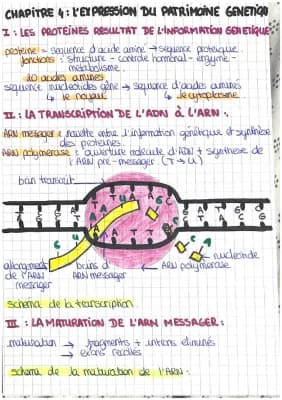 CHAPITRE 4 : L'EXPRESSION DU PATRIMOINE GENETIQ
I : LES PROTEINES RESULTAT DE L'INFORMATION GENETIQUE
proteine = sequence d'acide aminé → sequence proteique.
fonctions : structure - controle hormonal - enzyme -
metabolisme.
20 acides aminés
sequence nucleotides gène → sequence d'acides aminés
↳ le noyau ↳ le cytoplasme
II : LA TRANSCRIPTION DE L'ADN à L'ARN :
ARN messager : navette entre l'information génétique et synthèse
des proteines.
ARN polymerase : ouverture molecule d'ADN + synthèse de
l'ARN pre-messager (T → U)
brin transcrit
nucleotide
allongement brins d' ARN polymerase
de l'ARN ARN messager
messager
schema de la transcription
III : LA MATURATION DE L'ARN MESSAGER :
maturation → fragments + introns eliminés
→ exons recollés
schema de la maturation de l'ARN :